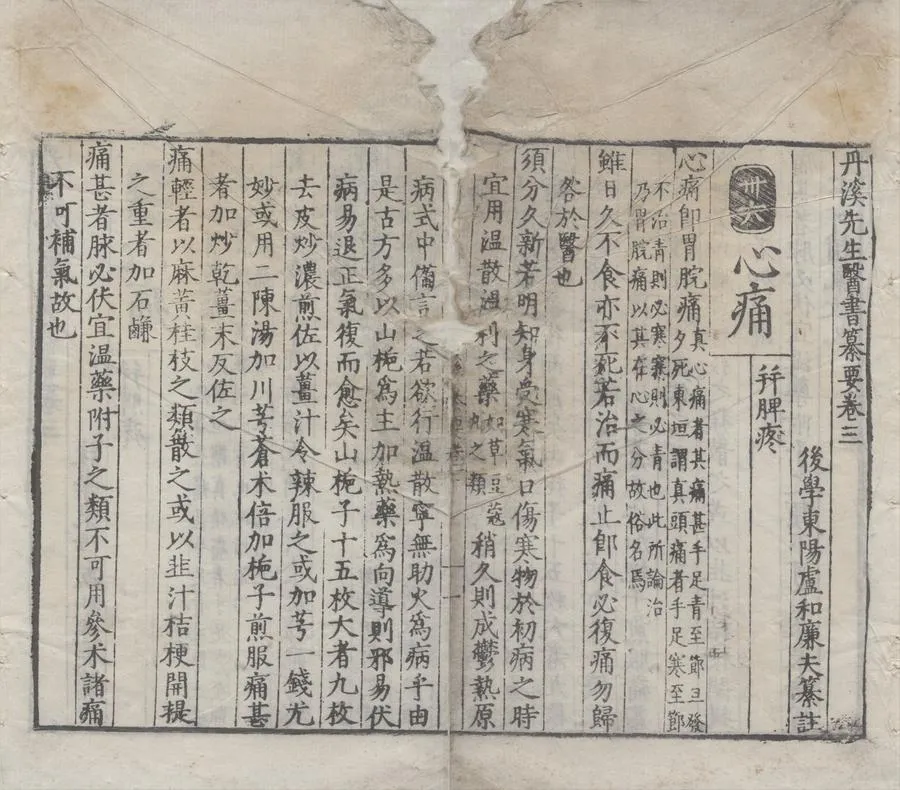 丹溪先生醫書纂要卷三
後學東陽盧和廉夫纂註
卅六
心痛
并脾疼
心痛即胃脘痛
真心痛者其痛甚手足青至節旦發
夕死東垣謂真頭痛者手足寒至節
不治青則必寒寒則必青也此所論治
乃胃脘痛以其在心之分故俗名焉
雖日久不食亦不死若治而痛止即食必復痛勿歸
咎於醫也
須分久新若明知身受寒氣口傷寒物於初病之時
宜用溫散溫利之藥
如草豆蔻
丸之類
稍久則成鬱熱原
病式中備言之若欲行溫散寧無助火為病乎由
是古方多以山梔為主加熱藥為向導則邪易伏
病易退正氣復而愈矣山梔子十五枚大者九枚
去皮炒濃煎佐以薑汁令辣服之或加芎一錢尤
妙或用二陳湯加川芎蒼朮倍加梔子煎服痛甚
者加炒乾薑末反佐之
痛輕者以麻黃桂枝之類散之或以韭汁桔梗開提
之重者加石鹻
痛甚者脉必伏宜溫藥附子之類不可用參朮諸痛
不可補氣故也